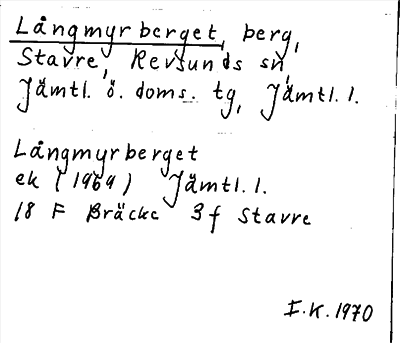 Långmyrberget, berg,
Stavre, Revsunds sn,
Jämtl. ö. doms. tg, Jämtl. l.
Långmyrberget
ek (1969) Jämtl. l.
18 F Bräcke 3f Stavre
I.K. 1970